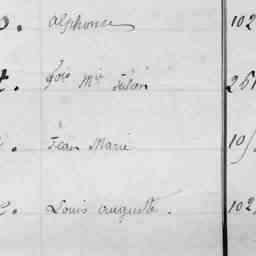 Alphonse 102
fois Mie Julien 261
Jean Marie 10
Louis auguste. 102